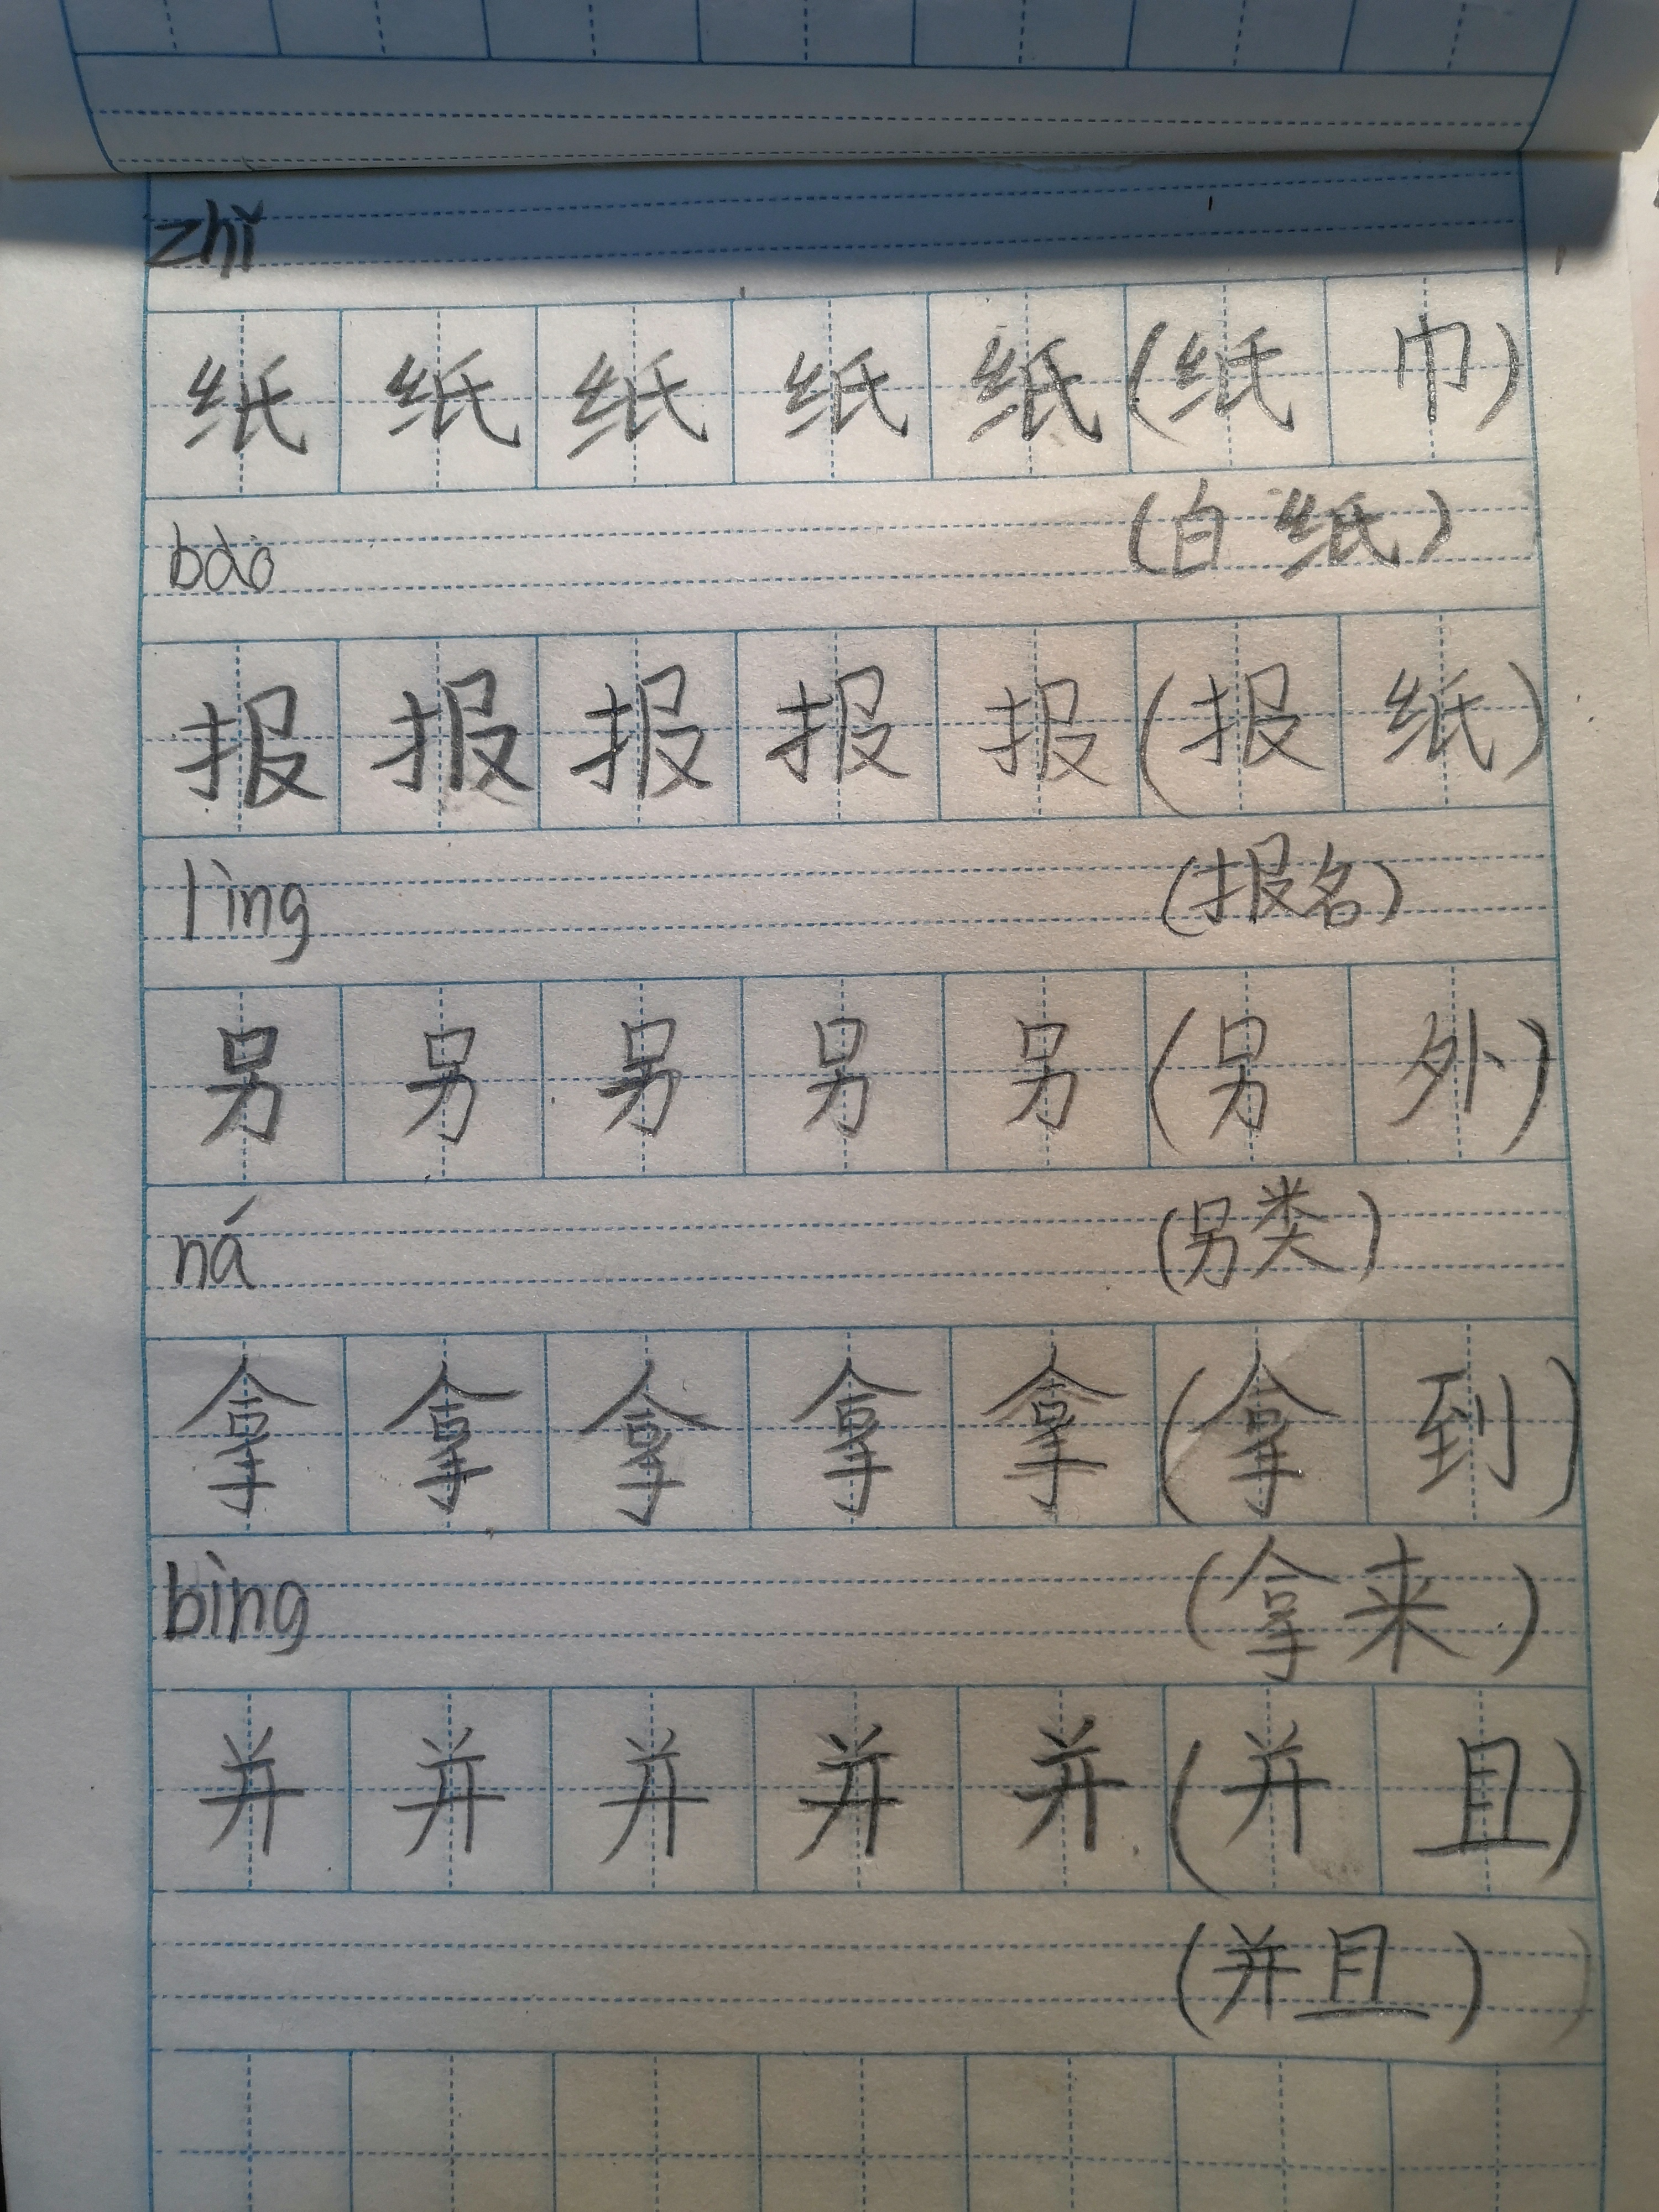 zhǐ
纸 纸 纸 纸 纸 (纸 巾)
(白纸)
bào
报 报 报 报 报 (报 纸)
lìng (报名)
另 另 另 另 另 (另 外)
ná (另类)
拿 拿 拿 拿 拿 (拿 到)
bìng (拿来)
并 并 并 并 并 (并 且)
(并且)